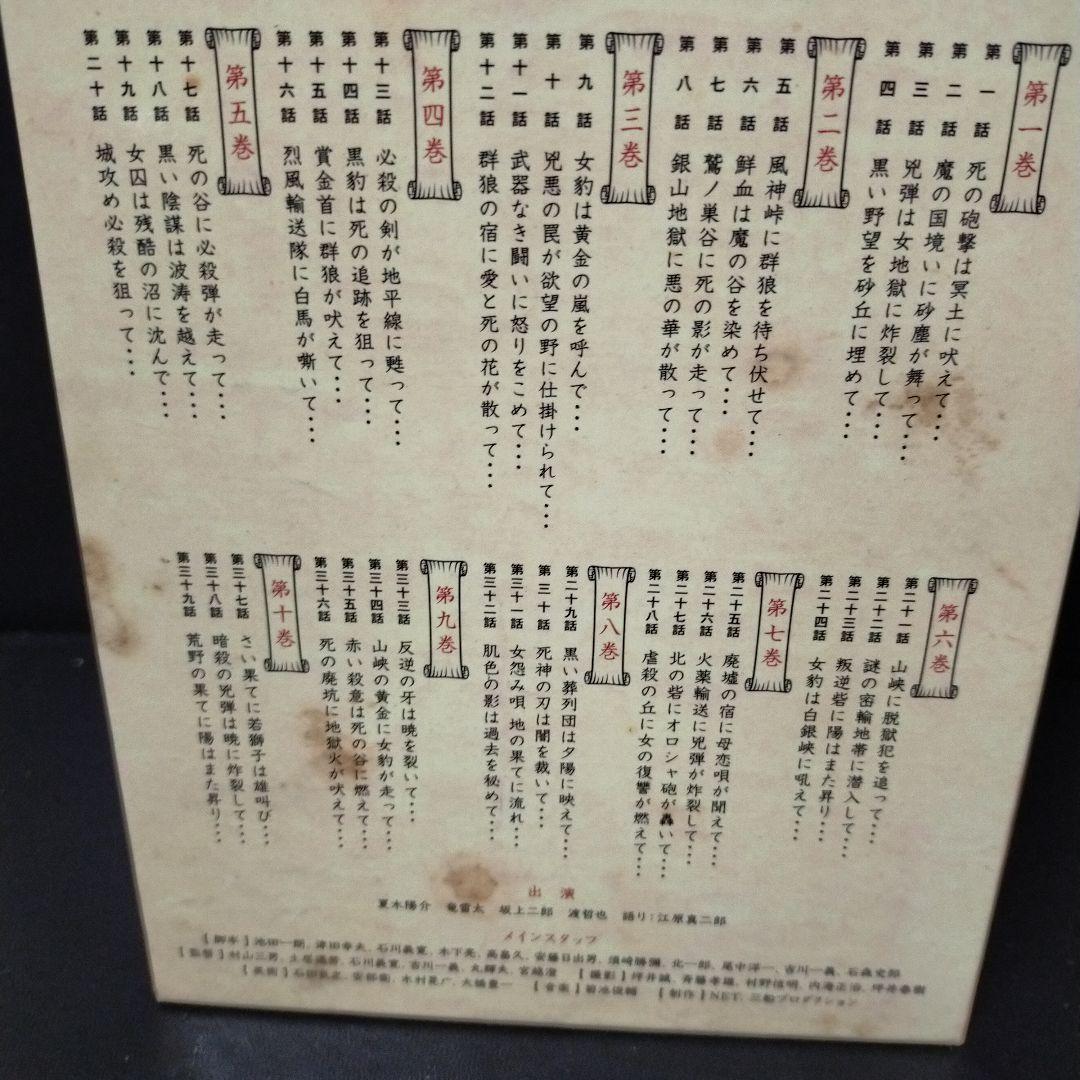 第一巻
第一話 死の砲撃は冥土に吠えて・・・
第二話 魔の国境いに砂塵が舞って・・・
第三話 兇弾は女地獄に炸裂して・・・
第四話 黒い野望を砂丘に埋めて・・・
第二巻
第五話 風神峠に群狼を待ち伏せて・・・
第六話 鮮血は魔の谷を染めて・・・
第七話 鷲ノ巣谷に死の影が走って・・・
第八話 銀山地獄に悪の華が散って・・・
第三巻
第九話 女豹は黄金の嵐を呼んで・・・
第十話 兇悪の罠が欲望の野に仕掛けられて・・・
第十一話 武器なき闘いに怒りをこめて・・・
第十二話 群狼の宿に愛と死の花が散って・・・
第四巻
第十三話 必殺の剣が地平線に甦って・・・
第十四話 黒豹は死の追跡を狙って・・・
第十五話 賞金首に群狼が吠えて・・・
第十六話 烈風輸送隊に白馬が嘶いて・・・
第五巻
第十七話 死の谷に必殺弾が走って・・・
第十八話 黒い陰謀は波涛を越えて・・・
第十九話 女囚は残酷の沼に沈んで・・・
第二十話 城攻め必殺を狙って・・・
第六巻
第二十一話 山峡に脱獄犯を追って・・・
第二十二話 謎の密輸地帯に潜入して・・・
第二十三話 叛逆砦に陽はまた昇り・・・
第二十四話 女豹は白銀峡に吼えて・・・
第七巻
第二十五話 廃墟の宿に母恋唄が聞えて・・・
第二十六話 火薬輸送に兇弾が炸裂して・・・
第二十七話 北の砦にオロシャ砲が轟いて・・・
第二十八話 虐殺の丘に女の復讐が燃えて・・・
第八巻
第二十九話 黒い葬列団は夕陽に映えて・・・
第三十話 死神の刃は闇を裁いて・・・
第三十一話 女怨み唄 地の果てに流れ・・・
第三十二話 肌色の影は過去を秘めて・・・
第九巻
第三十三話 反逆の牙は暁を裂いて・・・
第三十四話 山峡の黄金に女豹が走って・・・
第三十五話 赤い殺意は死の谷に燃えて・・・
第三十六話 死の廃坑に地獄火が吠えて・・・
第十巻
第三十七話 さい果てに若獅子は雄叫び・・・
第三十八話 暗殺の兇弾は暁に炸裂して・・・
第三十九話 荒野の果てに陽はまた昇り・・・
出 演
夏木陽介 竜雷太 坂上二郎 渡哲也 語り：江原真二郎
メインスタッフ
【脚本】池田一朗、津田幸夫、石川義寛、木下亮、高畠久、安藤日出男、須崎勝彌、北一郎、尾中洋一、吉川一義、石森史郎
【監督】村山三男、石川義寛、吉川一義、丸輝夫、宮越澄 【撮影】坪井誠、斉藤孝雄、村野信明、内海正治、坪井春樹
【美術】 【音楽】菊池俊輔 【制作】NET、三船プロダクション